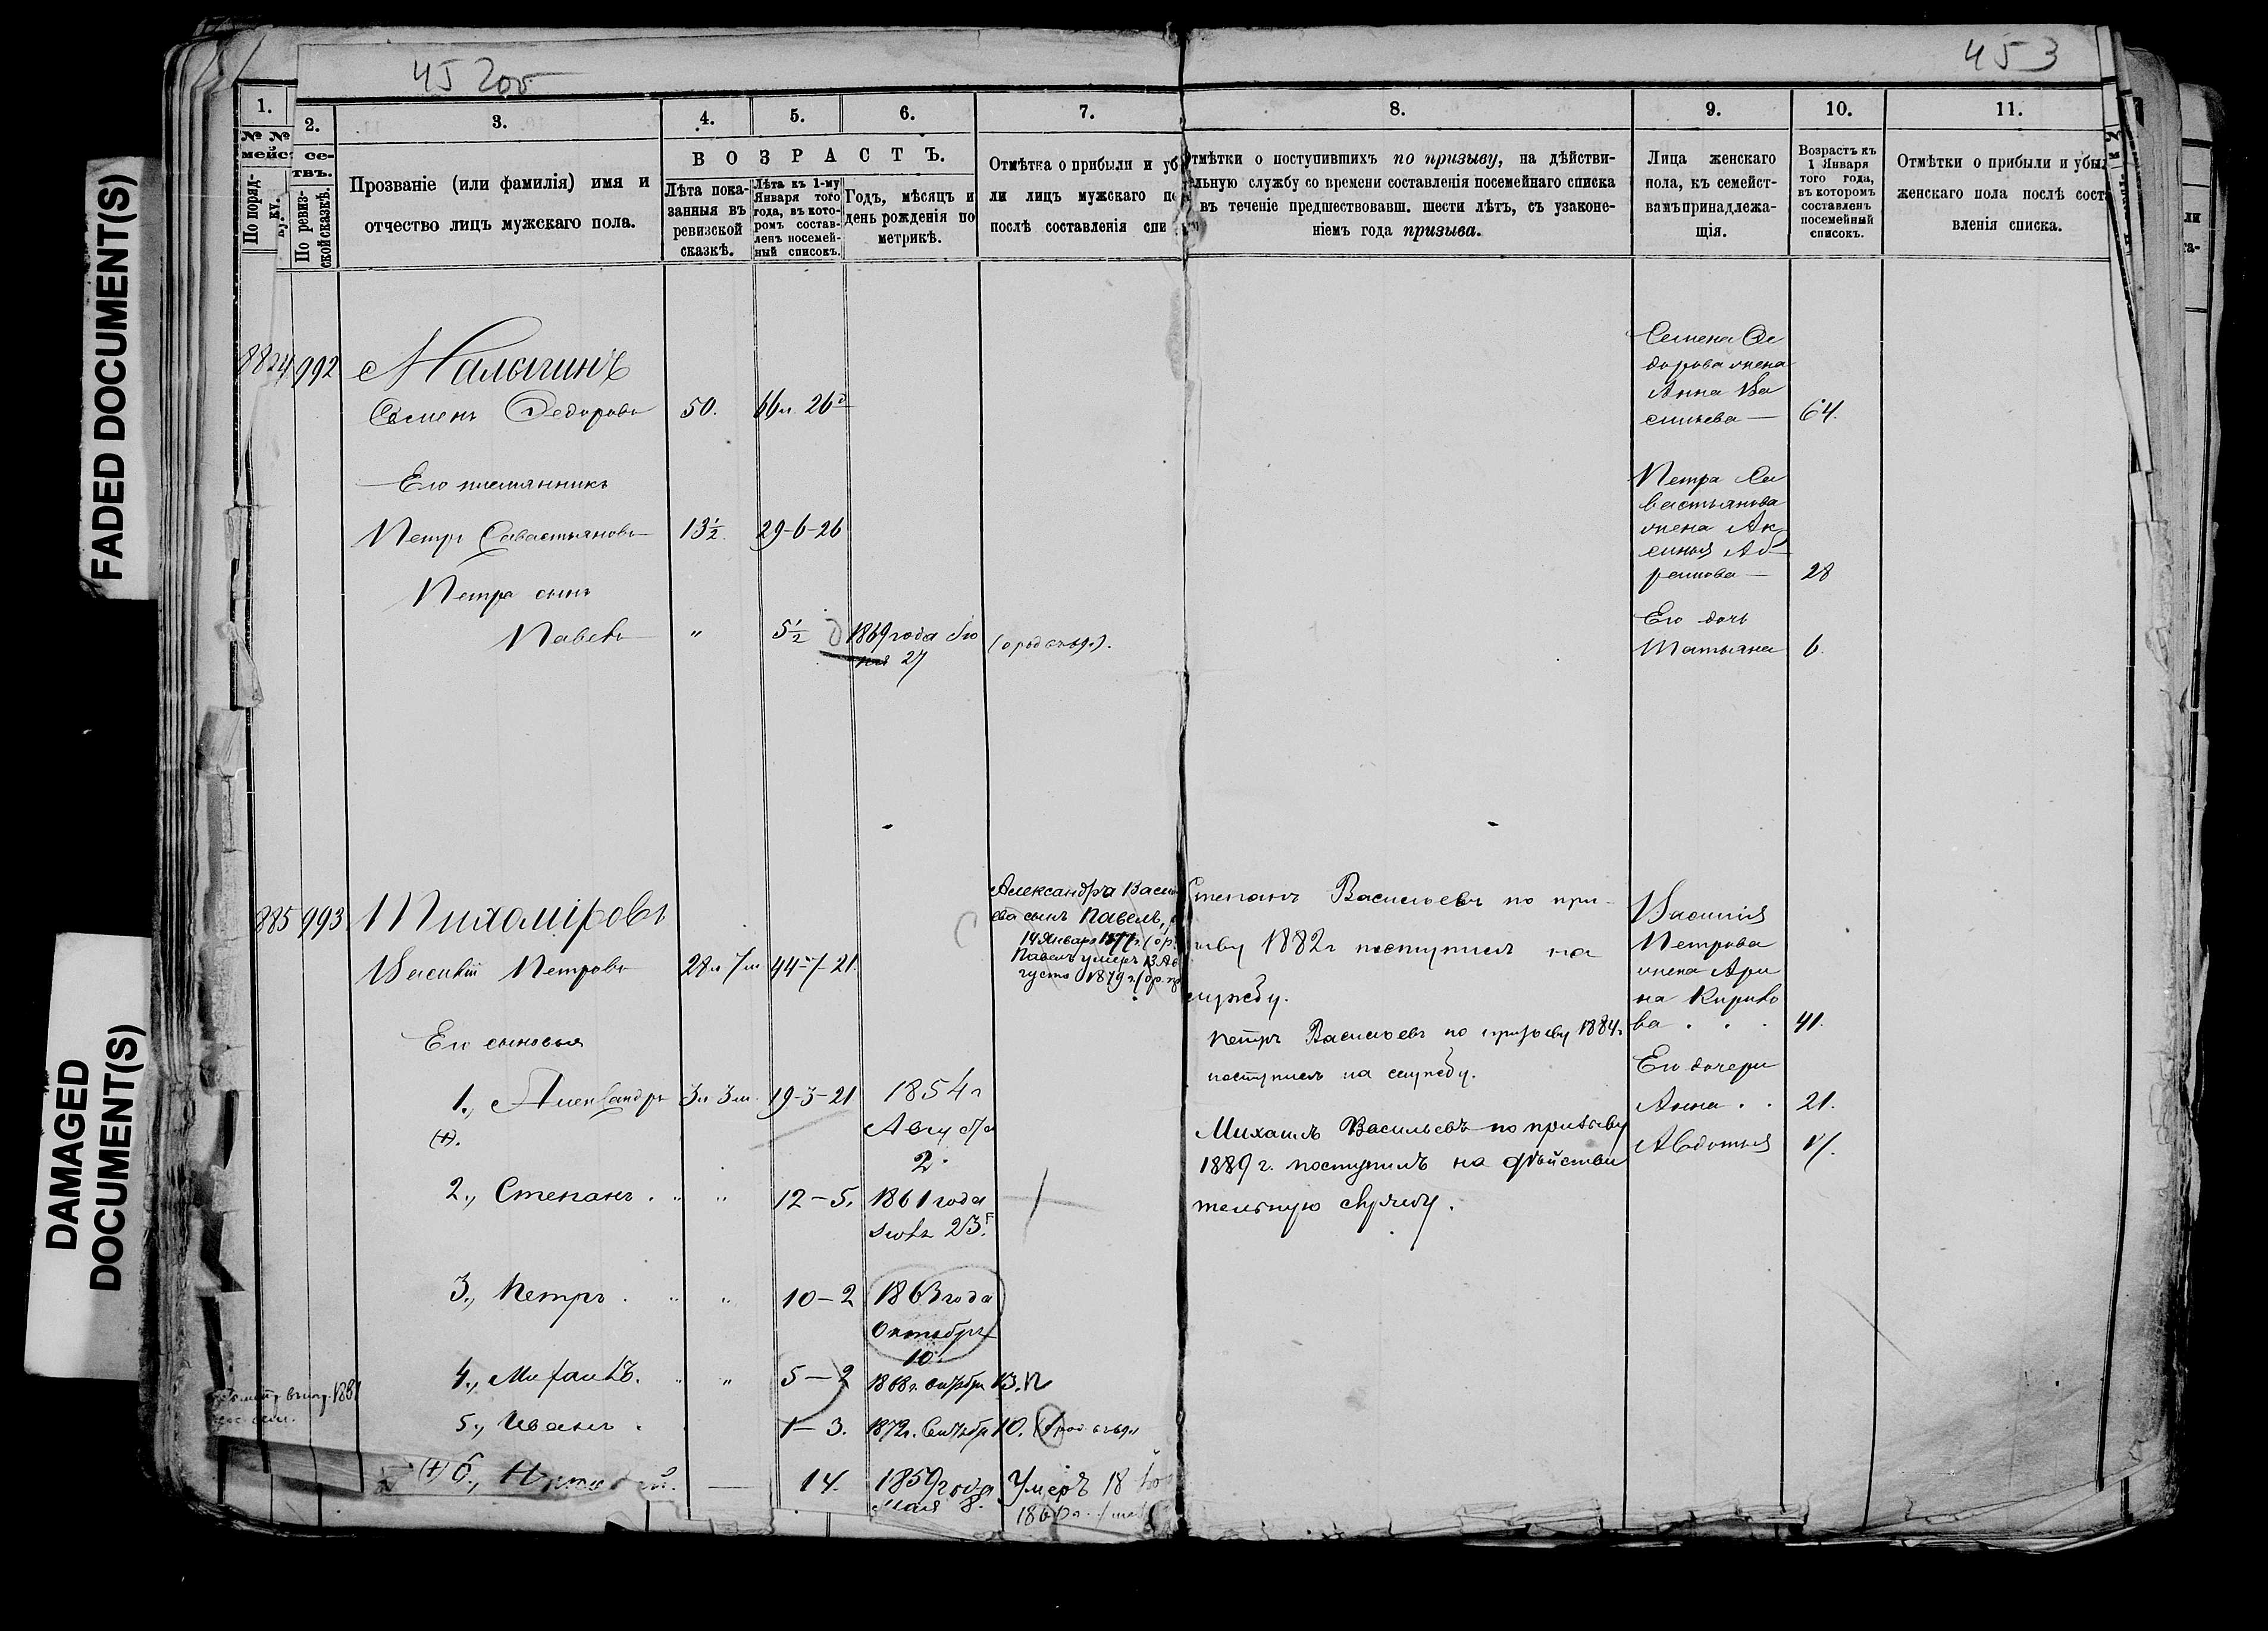 FADED DOCUMENT(S)
DAMAGED
DOCUMENT(S)
45 200
453
1.
№ №
мейс
По поряд-
ку.
2.
се-
твъ.
По ревиз-
ской сказкѣ.
3.
Прозваніе (или фамилія) имя и
отчество лицъ мужскаго пола.
4.
5.
6.
ВОЗРАСТЪ.
Лѣта пока-
занныя въ
ревизской
сказкѣ.
Лѣта къ 1-му
Января того
года, въ кото-
ромъ состав-
ленъ посемей-
ный списокъ.
Годъ, мѣсяцъ и
день рожденія по
метрикѣ.
7.
Отмѣтка о прибыли и уб
ли лицъ мужскаго по
послѣ составленія спи
8.
тмѣтки о поступившихъ по призыву, на дѣйстви-
льную службу со времени составленія посемейнаго списка
въ теченіе предшествовавш. шести лѣтъ, съ узаконе-
ніемъ года призыва.
9.
Лица женскаго
пола, къ семейст-
вамъ принадлежа-
щія.
10.
Возрастъ къ
1 Января
того года,
въ которомъ
составленъ
посемейный
списокъ.
11.
Отмѣтки о прибыли и убыл
женскаго пола послѣ сост
вленія списка.
992
Малыгинъ
Семенъ Федоровъ 50. 66 л. 26 д
Семена Фе
дорова жена
Анна Ва
сильева — 64.
Его племянникъ
Петръ Савастьяновъ 13½ 29-6-26
Петра Са
вастьянова
жена Ак
синья Аб
рамова — 28
Петра сынъ
Павелъ " 5½ 1869 года Iю
ня 27
Его дочь
Татьяна 6.
885 993
Тихоміровъ
Василій Петровъ 28 л 7 м 44-7-21.
Александра Василь
ева сынъ Павелъ,
14 Января 1877 г. (ор.
Павелъ умеръ 13 Ав
густа 1879 г. (ор.
Степанъ Васильевъ по при-
зыву 1882 г поступилъ на
службу.
Петръ Васильевъ по призыву 1884 г
поступилъ на службу.
Михаилъ Васильевъ по призыву
1889 г. поступилъ на дѣйстви
тельную службу.
Василія
Петрова
жена Ари
на Кирило
ва . . . 41.
Его дочери
Анна . . 21.
Авдотья 17.
Его сыновья
1., Александръ 3 л 3 м. 19-3-21 1854 г
Августа
2.
(+).
2., Степанъ . " " 12-5. 1861 года
Iюля 25.
3., Петръ . " " 10-2 1863 года
Октября
10.
4., Михаилъ. " " 5-2 1868 г. Октября 13.
5., Иванъ . 1-3. 1872 г. Сентября 10.
(+) 6., — 14. 1859 года
Мая 8.
Умеръ 18